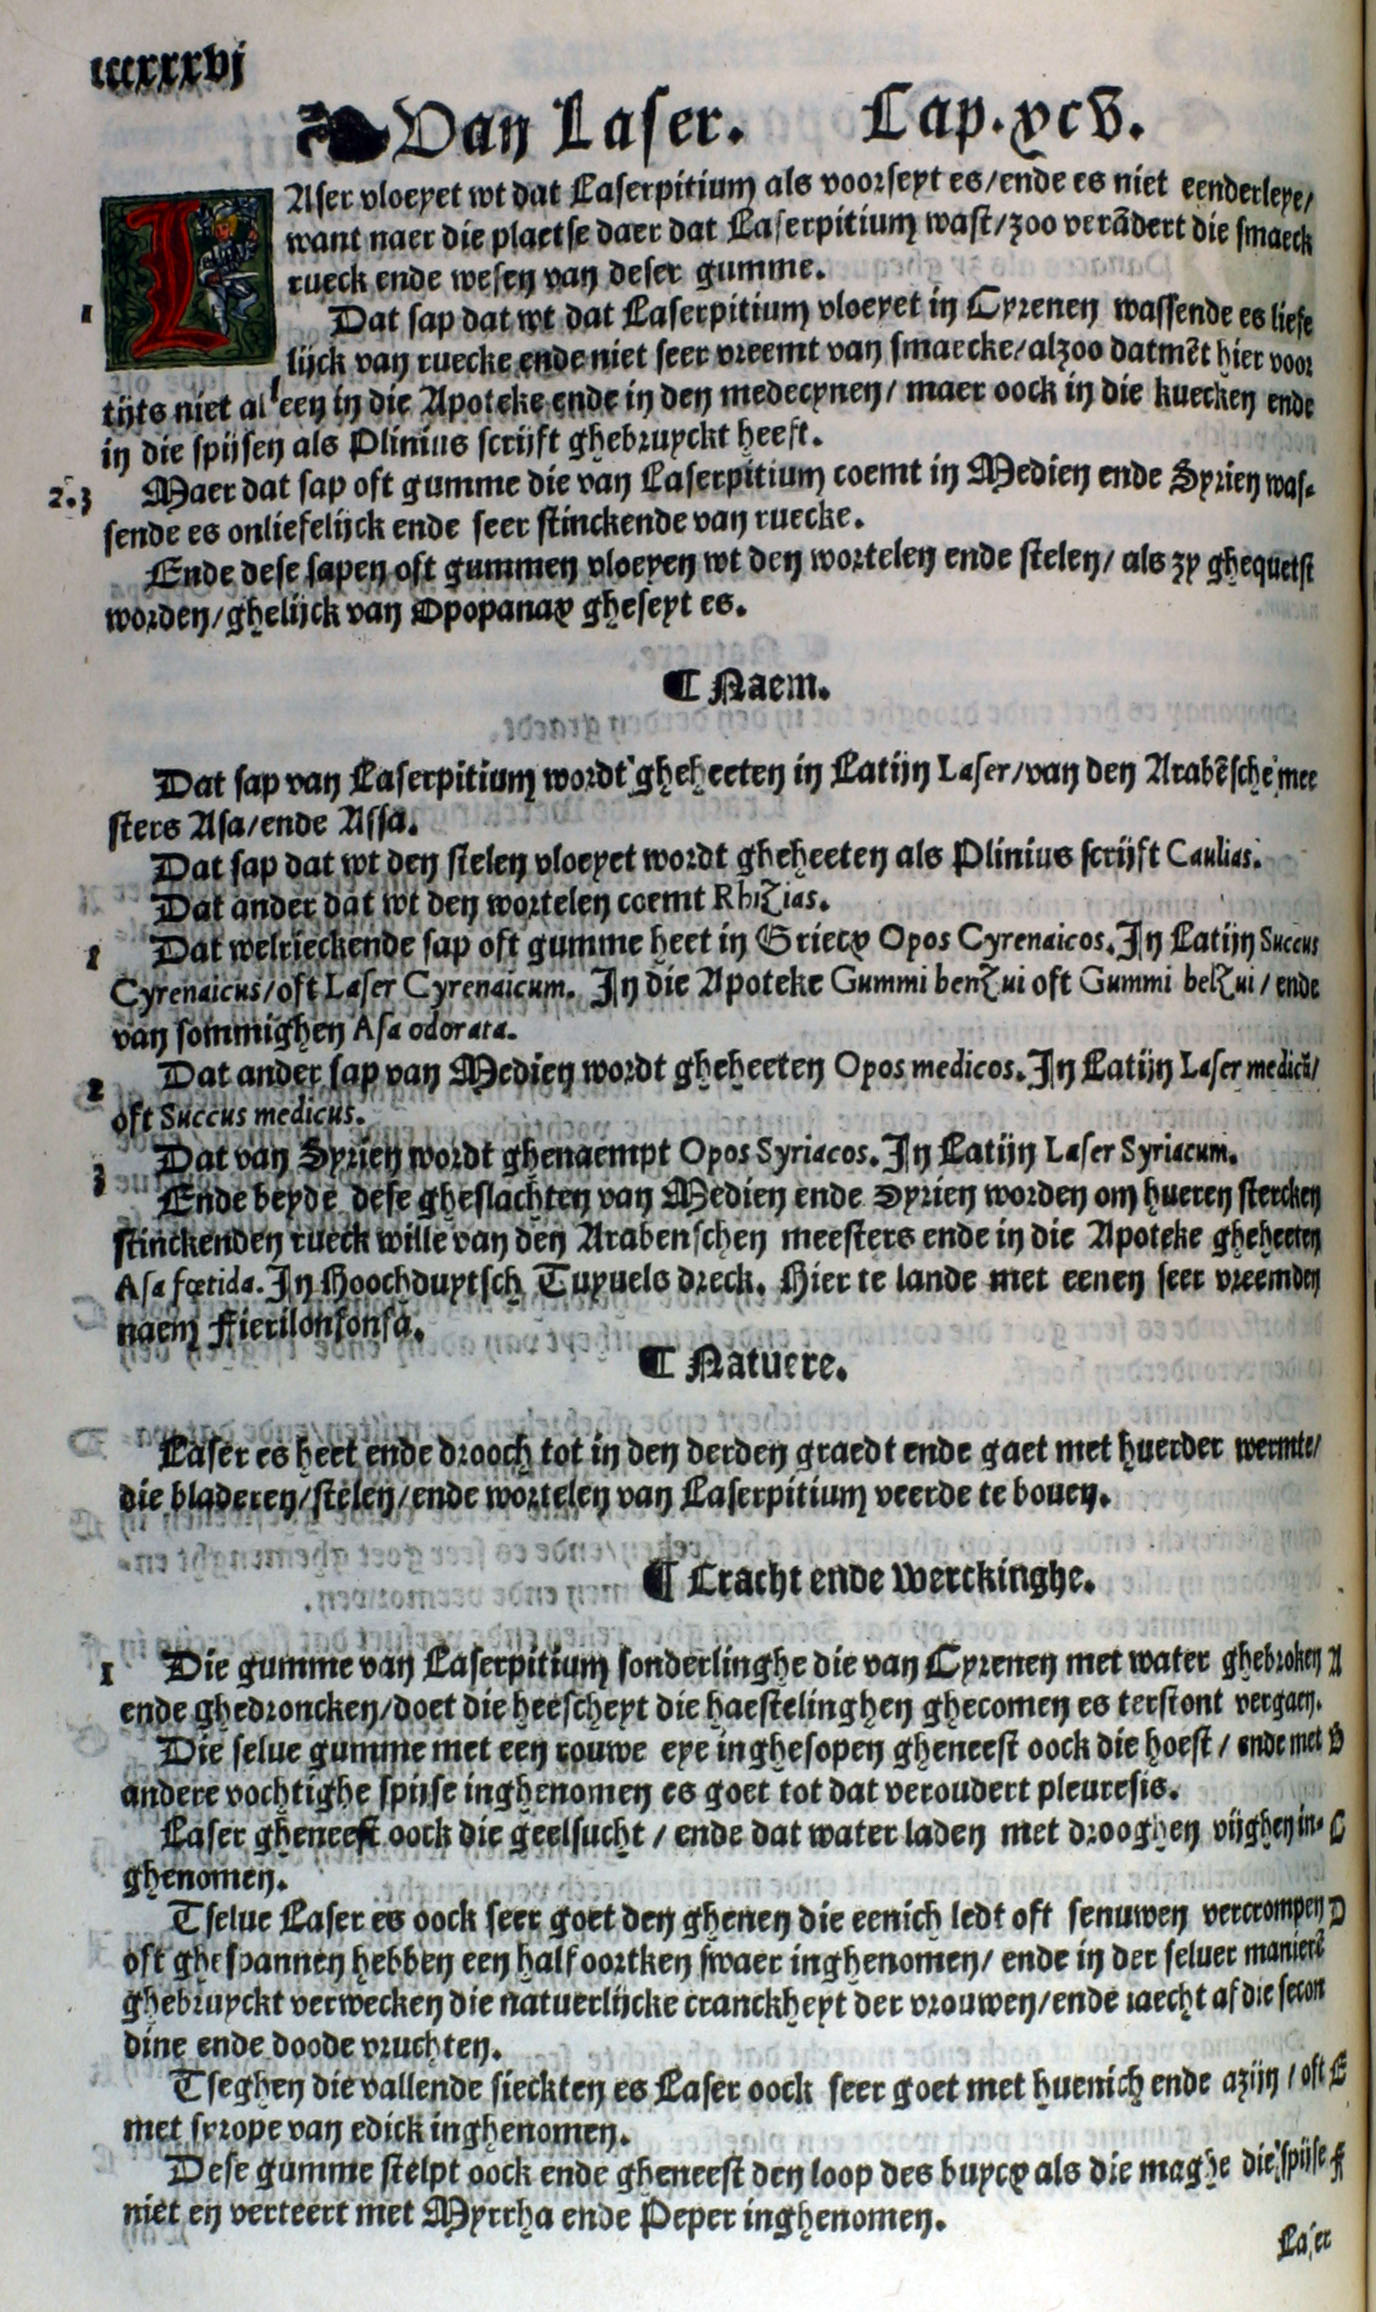 cccxxxvj
Van Laser. Cap. xcv.
LAser vloeyet wt dat Laserpitium als voorseyt es/ende es niet eenderleye/
want naer die plaetse daer dat Laserpitium wast/zoo verãdert die smaeck
rueck ende wesen van deser gumme.
1 Dat sap dat wt dat Laserpitium vloeyet in Cyrenen wassende es liefe
lijck van ruecke ende niet seer vreemt van smaecke/alzoo datmẽt hier voor
tijts niet alleen in die Apoteke ende in den medecynen/ maer oock in die kuecken ende
in die spijsen als Plinius scrijft ghebruyckt heeft.
2.3 Maer dat sap oft gumme die van Laserpitium coemt in Medien ende Syrien was-
sende es onliefelijck ende seer stinckende van ruecke.
Ende dese sapen oft gummen vloeyen wt den wortelen ende stelen/ als zy ghequetst
worden/ghelijck van Opopanax gheseyt es.
¶ Naem.
Dat sap van Laserpitium wordt gheheeten in Latijn Laser/van den Arabẽsche mee
sters Asa/ende Assa.
Dat sap dat wt den stelen vloeyet wordt gheheeten als Plinius scrijft Caulias.
Dat ander dat wt den wortelen coemt Rhizias.
1 Dat welrieckende sap oft gumme heet in Griecx Opos Cyrenaicos. In Latijn Succus
Cyrenaicus/oft Laser Cyrenaicum. In die Apoteke Gummi benzui oft Gummi belzui/ ende
van sommighen Asa odorata.
2 Dat ander sap van Medien wordt gheheeten Opos medicos. In Latijn Laser medicũ/
oft Succus medicus.
3 Dat van Syrien wordt ghenaempt Opos Syriacos. In Latijn Laser Syriacum.
Ende beyde dese gheslachten van Medien ende Syrien worden om hueren stercken
stinckenden rueck wille van den Arabenschen meesters ende in die Apoteke gheheeten
Asa fœtida. In Hoochduytsch Tuyuels dreck. Hier te lande met eenen seer vreemden
naem Fierilonfonfa.
¶ Natuere.
Laser es heet ende drooch tot in den derden graedt ende gaet met huerder wermte/
die bladeren/stelen/ende wortelen van Laserpitium veerde te bouen.
¶ Cracht ende Werckinghe.
1 Die gumme van Laserpitium sonderlinghe die van Cyrenen met water ghebroken A
ende ghedroncken/doet die heescheyt die haestelinghen ghecomen es terstont vergaen.
Die selue gumme met een rouwe eye inghesopen gheneest oock die hoest/ ende met B
andere vochtighe spijse inghenomen es goet tot dat veroudert pleuresis.
Laser gheneest oock die geelsucht / ende dat water laden met drooghen vijghen in- C
ghenomen.
Tselue Laser es oock seer goet den ghenen die eenich ledt oft senuwen vercrompen D
oft ghespannen hebben een half oortken swaer inghenomen/ ende in der seluer manierẽ
ghebruyckt verwecken die natuerlijcke cranckheyt der vrouwen/ende iaecht af die secon
dine ende doode vruchten.
Tseghen die vallende sieckten es Laser oock seer goet met huenich ende azijn / oft E
met syrope van edick inghenomen.
Dese gumme stelpt oock ende gheneest den loop des buycx als die maghe die spijse F
niet en verteert met Myrrha ende Peper inghenomen.
Laser